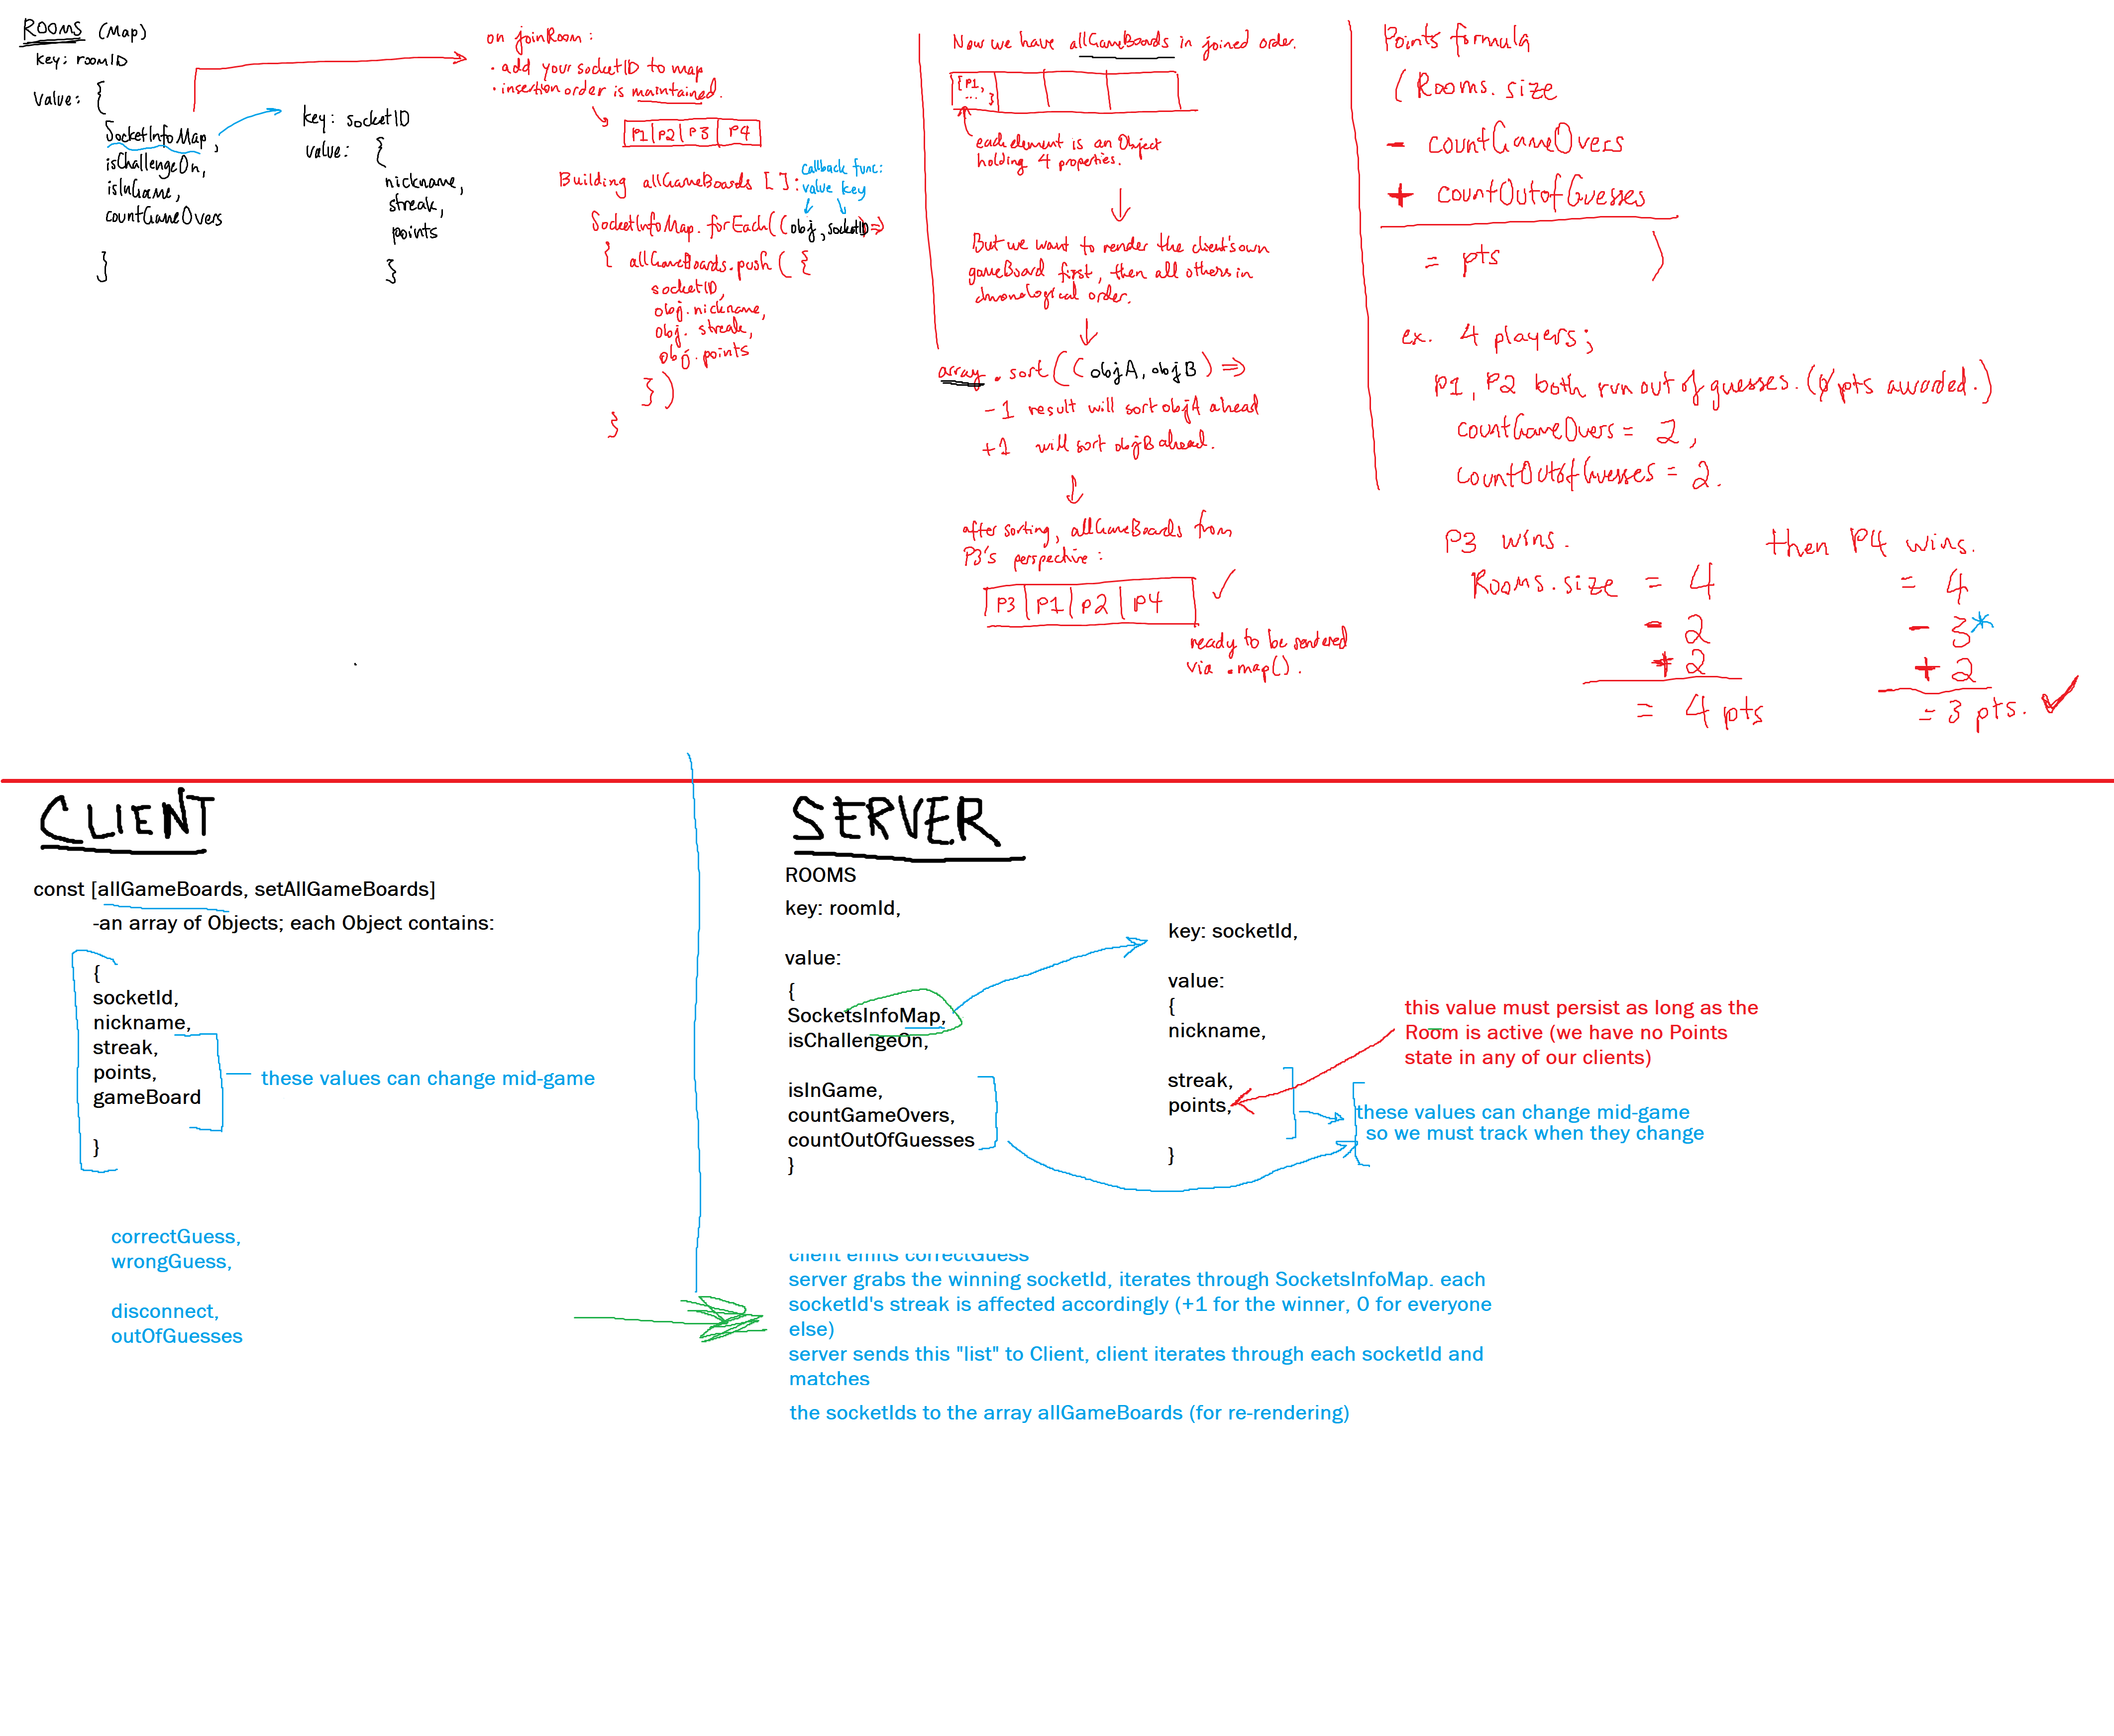 ROOMS (Map)
key: roomID
Value: {
SocketInfoMap,
isChallengeOn,
isInGame,
countGameOvers
}
key: socketID
value: {
nickname,
streak,
points
}
on joinRoom:
• add your socketID to map
• insertion order is maintained.
P1 P2 P3 P4
Building allGameBoards []:
Callback func:
value key
SocketInfoMap.forEach((obj, socketID) =>
{ allGameBoards.push({
socketID,
obj.nickname,
obj. streak,
obj.points
})
}
Now we have allGameBoards in joined order.
{P1,
... }
each element is an Object
holding 4 properties.
But we want to render the client's own
gameBoard first, then all others in
chronological order.
array.sort((objA, objB) =>
-1 result will sort objA ahead
+1 will sort objB ahead.
after sorting, allGameBoards from
P3's perspective:
P3 P1 P2 P4
ready to be rendered
via .map().
Points formula
(Rooms.size
- countGameOvers
+ countOutofGuesses
= pts )
ex. 4 players;
P1, P2 both run out of guesses. (0 pts awarded.)
countGameOvers = 2,
countOutofGuesses = 2.
P3 wins.
Rooms.size = 4
- 2
+ 2
= 4 pts
then P4 wins.
= 4
- 3*
+ 2
= 3 pts. ✓
CLIENT
const [allGameBoards, setAllGameBoards]
-an array of Objects; each Object contains:
{
socketId,
nickname,
streak,
points,
gameBoard
}
these values can change mid-game
correctGuess,
wrongGuess,
disconnect,
outOfGuesses
SERVER
ROOMS
key: roomId,
value:
{
SocketsInfoMap,
isChallengeOn,
isInGame,
countGameOvers,
countOutOfGuesses
}
key: socketId,
value:
{
nickname,
streak,
points,
}
this value must persist as long as the
Room is active (we have no Points
state in any of our clients)
these values can change mid-game
so we must track when they change
client emits correctGuess
server grabs the winning socketId, iterates through SocketsInfoMap. each
socketId's streak is affected accordingly (+1 for the winner, 0 for everyone
else)
server sends this "list" to Client, client iterates through each socketId and
matches
the socketIds to the array allGameBoards (for re-rendering)